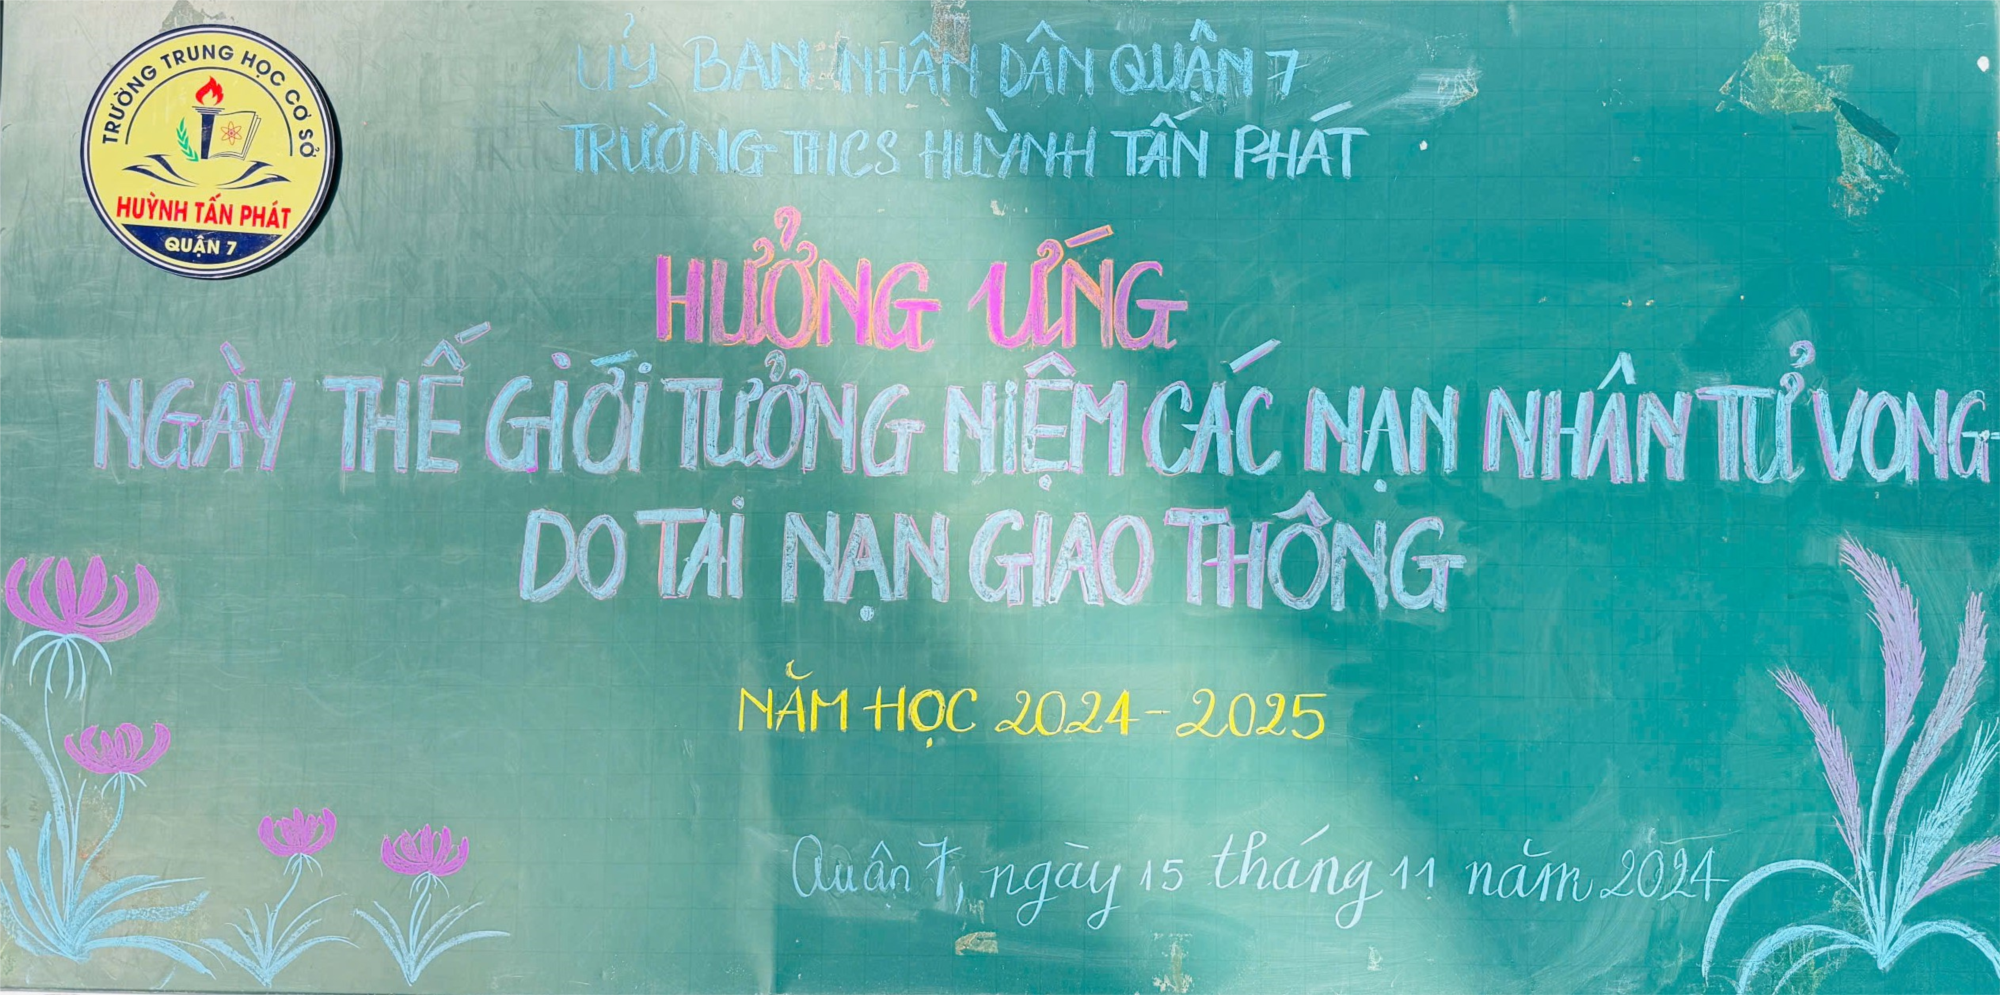 TRƯỜNG TRUNG HỌC CƠ SỞ
HUỲNH TẤN PHÁT
QUẬN 7
UỶ BAN NHÂN DÂN QUẬN 7
TRƯỜNG THCS HUỲNH TẤN PHÁT
HƯỞNG ỨNG
NGÀY THẾ GIỚI TƯỞNG NIỆM CÁC NẠN NHÂN TỬ VONG
DO TAI NẠN GIAO THÔNG
NĂM HỌC 2024-2025
Quận 7, ngày 15 tháng 11 năm 2024